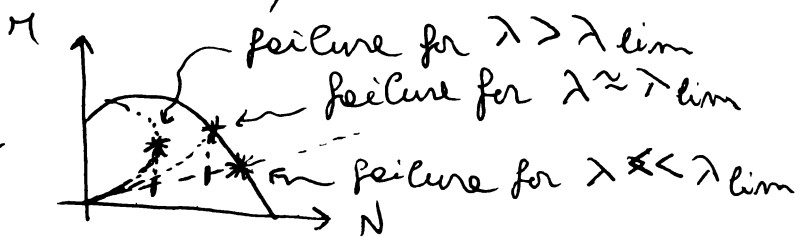 M
failure for λ > λ lim
failure for λ ≈ λ lim
failure for λ << λ lim
N